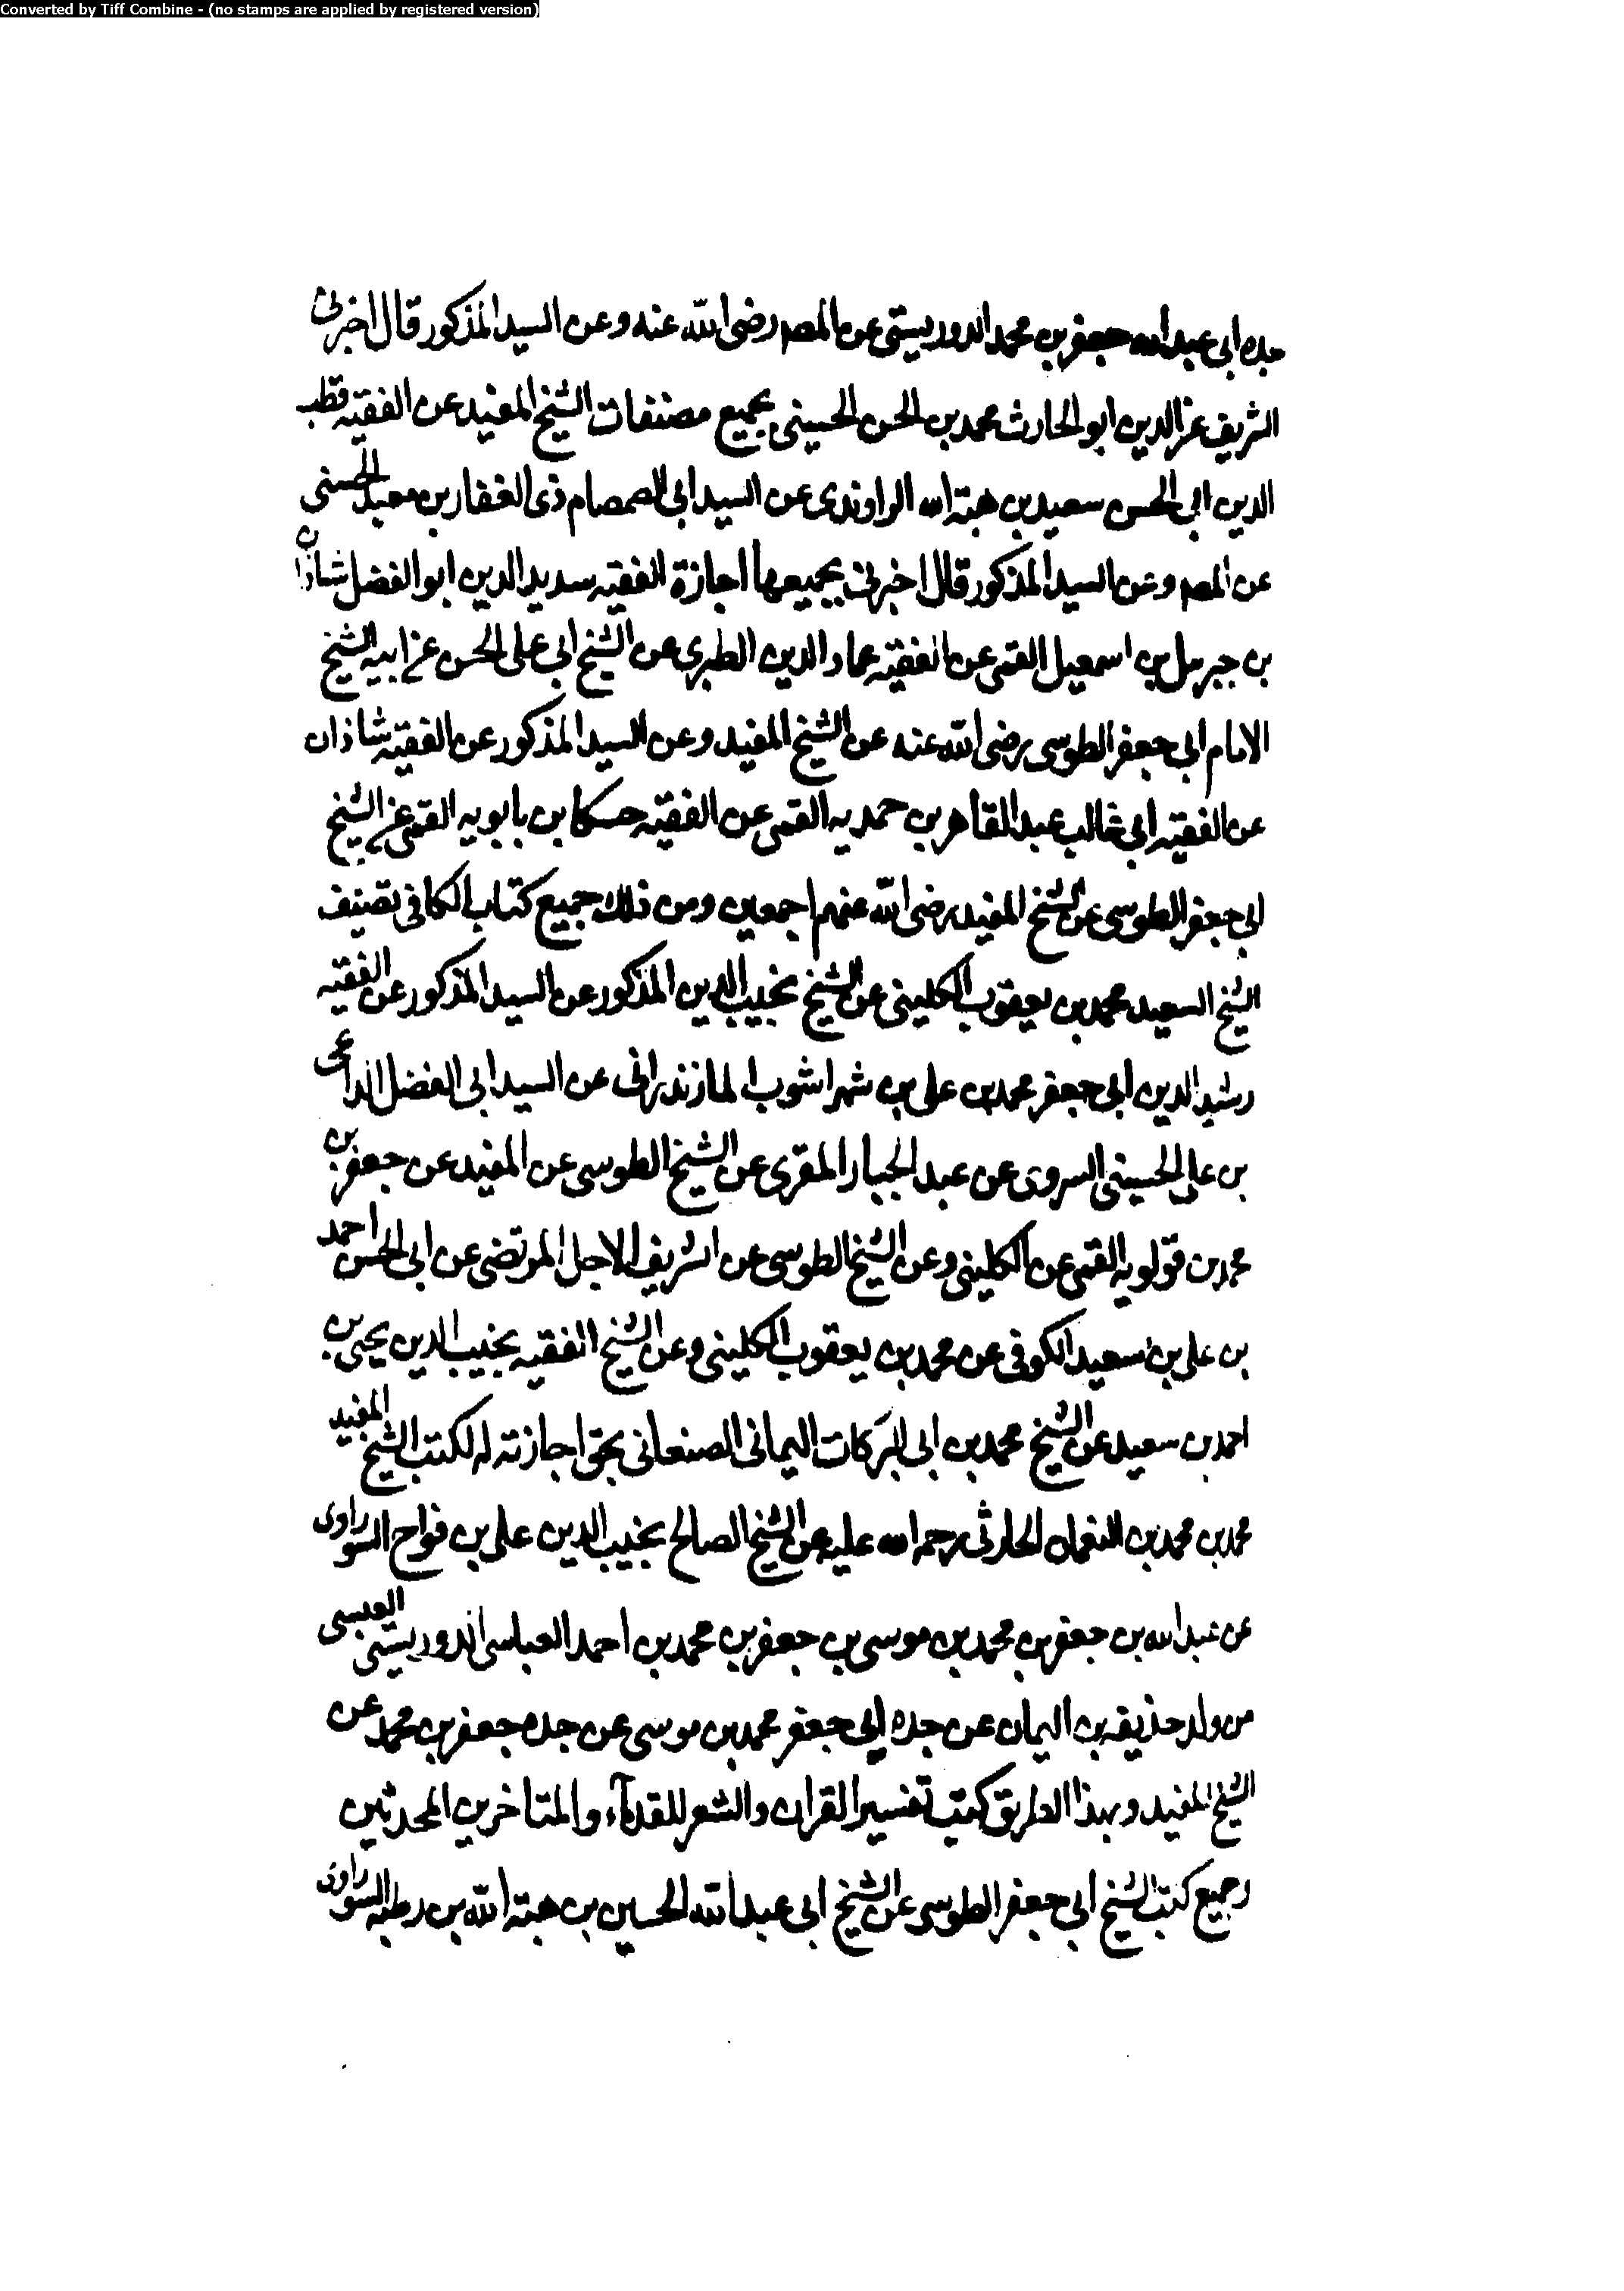 Converted by Tiff Combine - (no stamps are applied by registered version)
جده ابى عبد الله جعفر بن محمد الدوريستى عن المصر رضى الله عنه وعن السيد المذكور قال اخبرنى
الشريف عز الدين ابو الحارث محمد بن الحسن الحسينى بجميع مصنفات الشيخ المفيد عن الفقيه قطب
الدين ابى الحسن سعيد بن هبة الله الراوندى عن السيد ابى الصمصام ذى الفقار بن معبد الحسنى
عن المصر وعن السيد المذكور قال اخبرنى بجميعها اجازة الفقيه سديد الدين ابو الفضل شاذان
بن جبرئيل بن اسمعيل القمى عن الفقيه عماد الدين الطبرى عن الشيخ ابى على الحسن عن ابيه الشيخ
الامام ابى جعفر الطوسى رضى الله عنه عن الشيخ المفيد وعن السيد المذكور عن الفقيه شاذان
عن الفقيه ابى غالب عبد القاهر بن حمديه القمى عن الفقيه حسكا بن بابويه القمى عن الشيخ
ابى جعفر الطوسى عن الشيخ المفيد رضى الله عنهم اجمعين ومن ذلك جميع كتاب الكافى تصنيف
الشيخ السعيد محمد بن يعقوب الكلينى عن الشيخ نجيب الدين المذكور عن السيد المذكور عن الفقيه
رشيد الدين ابى جعفر محمد بن على بن شهراشوب المازندرانى عن السيد ابى الفضل الداعى
بن على الحسينى السروى عن عبد الجبار المقرى عن الشيخ الطوسى عن المفيد عن جعفر بن
محمد بن قولويه القمى عن الكلينى وعن الشيخ الطوسى عن الشريف الاجل المرتضى عن ابى الحسن احمد
بن على بن سعيد الكوفى عن محمد بن يعقوب الكلينى وعن الشيخ الفقيه نجيب الدين يحيى بن
احمد بن سعيد عن الشيخ محمد بن ابى البركات اليمانى الصنعانى بحق اجازته له لكتب الشيخ المفيد
محمد بن محمد بن النعمان الحارثى رحمه الله عليه عن الشيخ الصالح نجيب الدين على بن فواح السوراوى
عن عبد الله بن جعفر بن محمد بن موسى بن جعفر بن محمد بن احمد العباسى الدوريستى العبسى
من ولد حذيفه بن اليمان عن جده ابى جعفر محمد بن موسى عن جده جعفر بن محمد عن
الشيخ المفيد وبهذا الطريق كتب تفسير القران والشعر للقدمآء والمتاخرين المحدثين
وجميع كتب الشيخ ابى جعفر الطوسى عن الشيخ ابى عبد الله الحسين بن هبة الله بن رطبه السوراوى